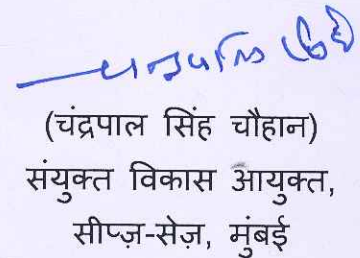 (चंद्रपाल सिंह चौहान)
संयुक्त विकास आयुक्त,
सीप्ज़-सेज़, मुंबई